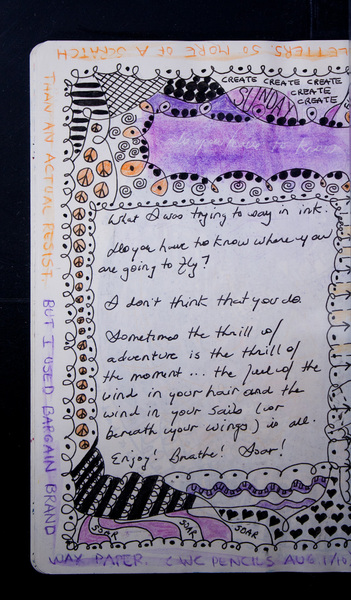 LETTERS. SO MORE OF A SCRATCH
THAN AN ACTUAL RESIST. BUT I USED BARGAIN BRAND
WAX PAPER. WC PENCILS AUG 1/10
CREATE CREATE CREATE
CREATE
CREATE
SUNDAY
Do you have to know
What I was trying to say in ink.
Do you have to know where you
are going to fly?
I don't think that you do.
Sometimes the thrill of
adventure is the thrill of
the moment... the feel of the
wind in your hair and the
wind in your sails (or
beneath your wings) is all.
Enjoy! Breathe! Soar!
SOAR
SOAR
SOAR